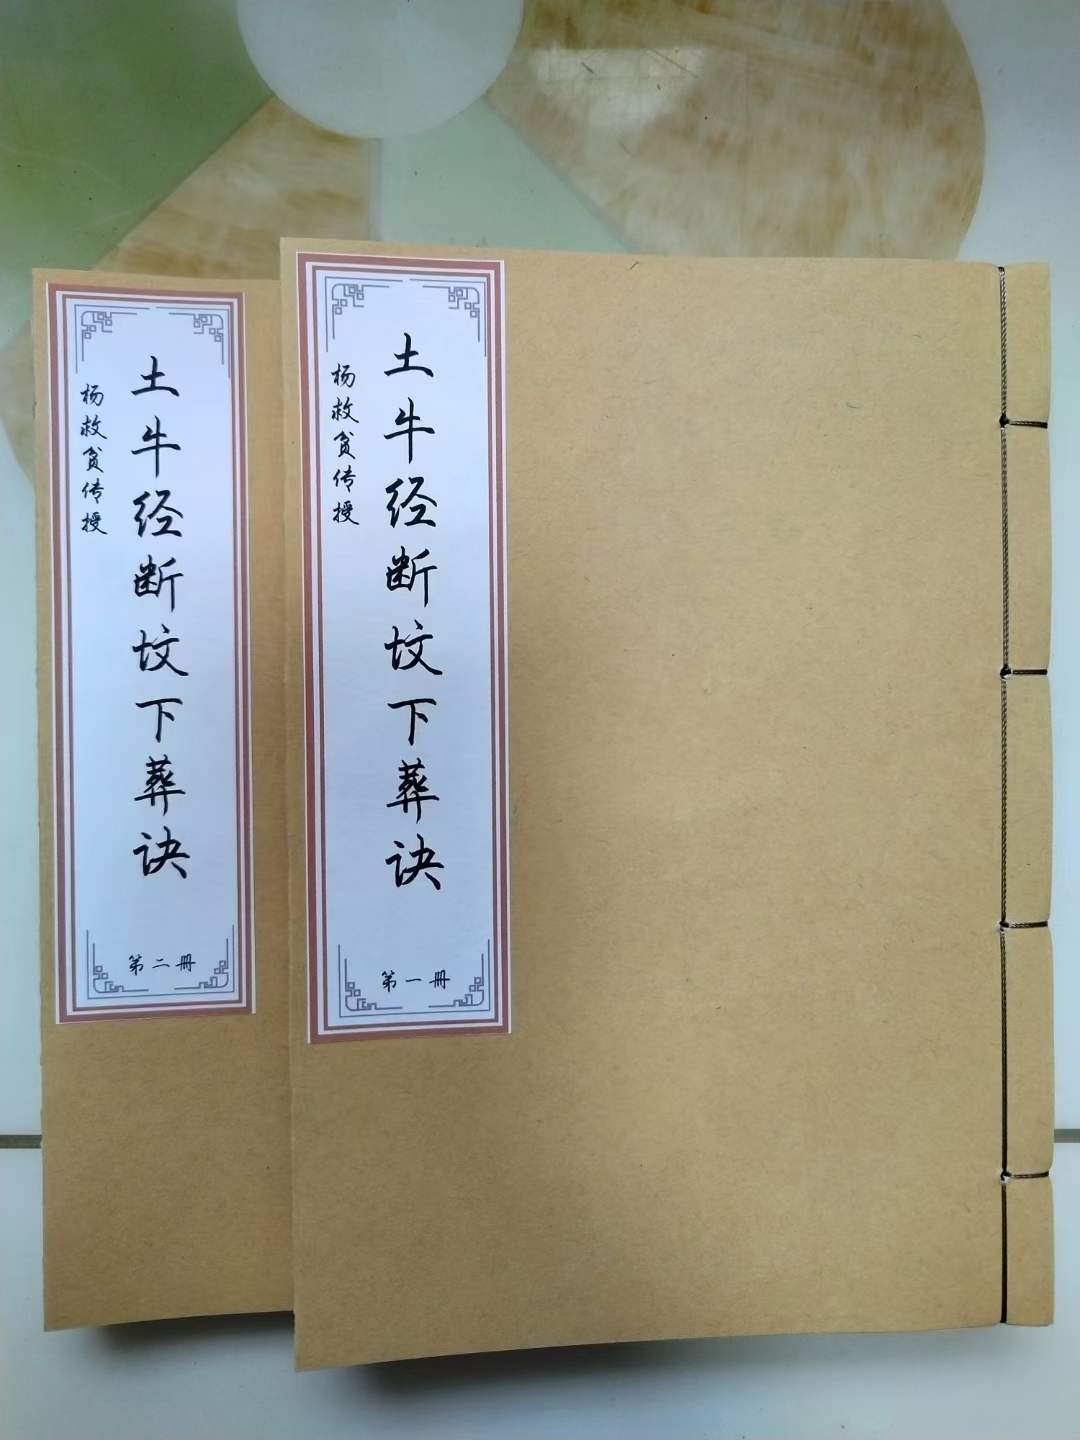 土牛经断坟下葬诀
杨救贫传授
第一册
土牛经断坟下葬诀
杨救贫传授
第二册